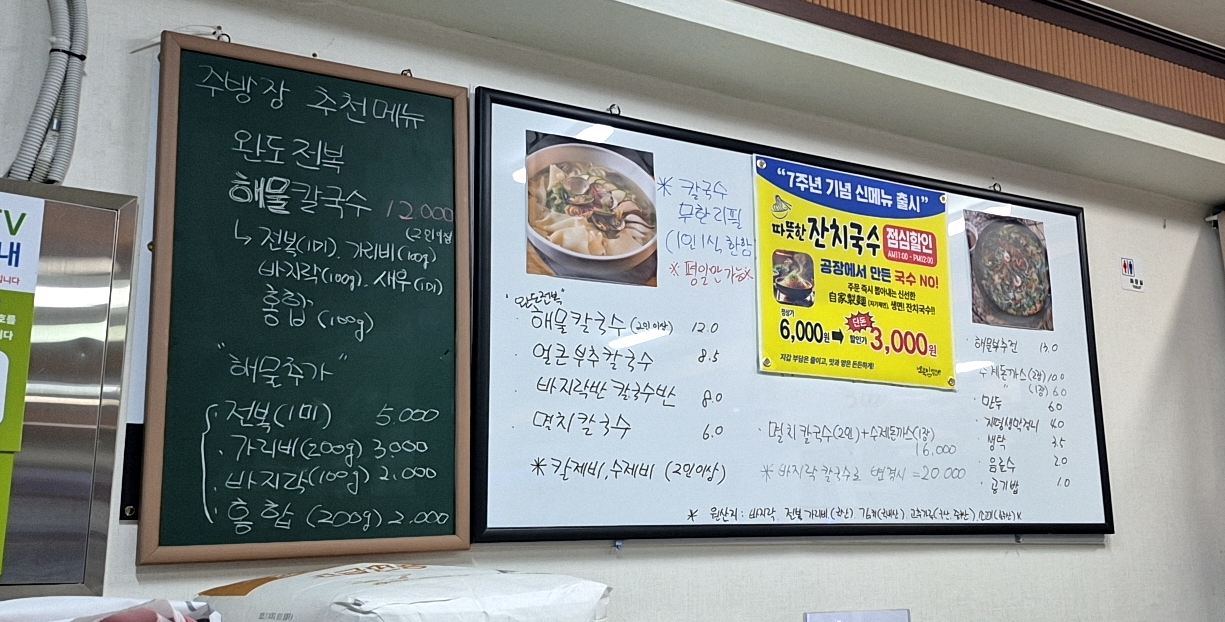 주방장 추천메뉴
완도전복
해물칼국수 12.000
(2인이상)
↳ 전복(1미), 가리비(100g)
바지락(100g), 새우(1미)
홍합 (100g)
"해물추가"
· 전복(1미) 5.000
· 가리비(200g) 3.000
· 바지락(100g) 2.000
· 홍합 (200g) 2.000
※ 칼국수
무한리필
(1인1식, 한함)
※ 평일만 가능※
"완도전복"
· 해물칼국수 (2인이상) 12.0
얼큰부추칼국수 8.5
바지락반 칼국수반 8.0
멸치칼국수 6.0
※ 칼제비, 수제비 (2인이상)
"7주년 기념 신메뉴 출시"
따뜻한 잔치국수 점심할인
AM11:00 - PM02:00
공장에서 만든 국수 NO!
주문 즉시 뽑아내는 신선한
自家製麵 (자가제면) 생면! 잔치국수!!
정상가 단돈
6,000원 ➡ 할인가 3,000원
지갑 부담은 줄이고, 맛과 양은 든든하게!
· 멸치칼국수(2인)+수제돈까스(1장)
16,000
※ 바지락 칼국수로 변경시 = 20.000
· 해물부추전 13.0
수제돈까스(2장) 10.0
〃 (1장) 6.0
· 만두 6.0
· 생탁 3.5
· 음료수 2.0
· 공기밥 1.0
※ 원산지: 바지락
TV
내